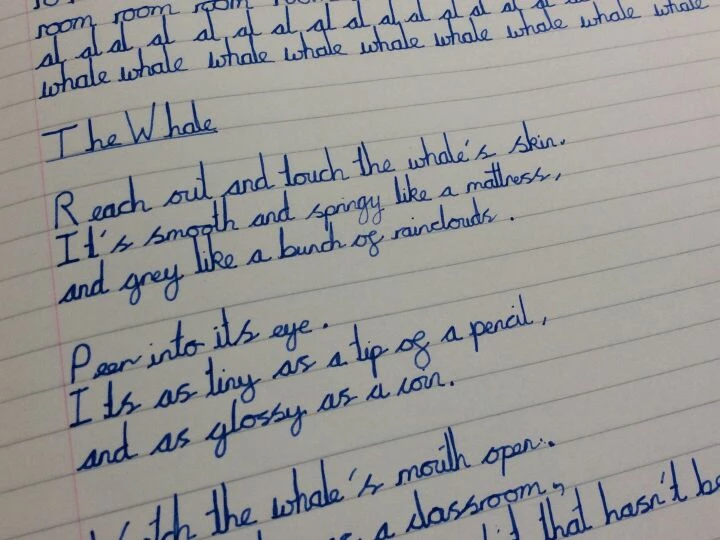 room room room room
al al al al al al al al al al al al al al
whale whale whale whale whale whale whale whale whale
The Whale
Reach out and touch the whale's skin.
It's smooth and springy like a mattress,
and grey like a bunch of rainclouds.
Peer into its eye.
Its as tiny as a tip of a pencil,
and as glossy as a coin.
the whale's mouth open.
a classroom,
that hasn't